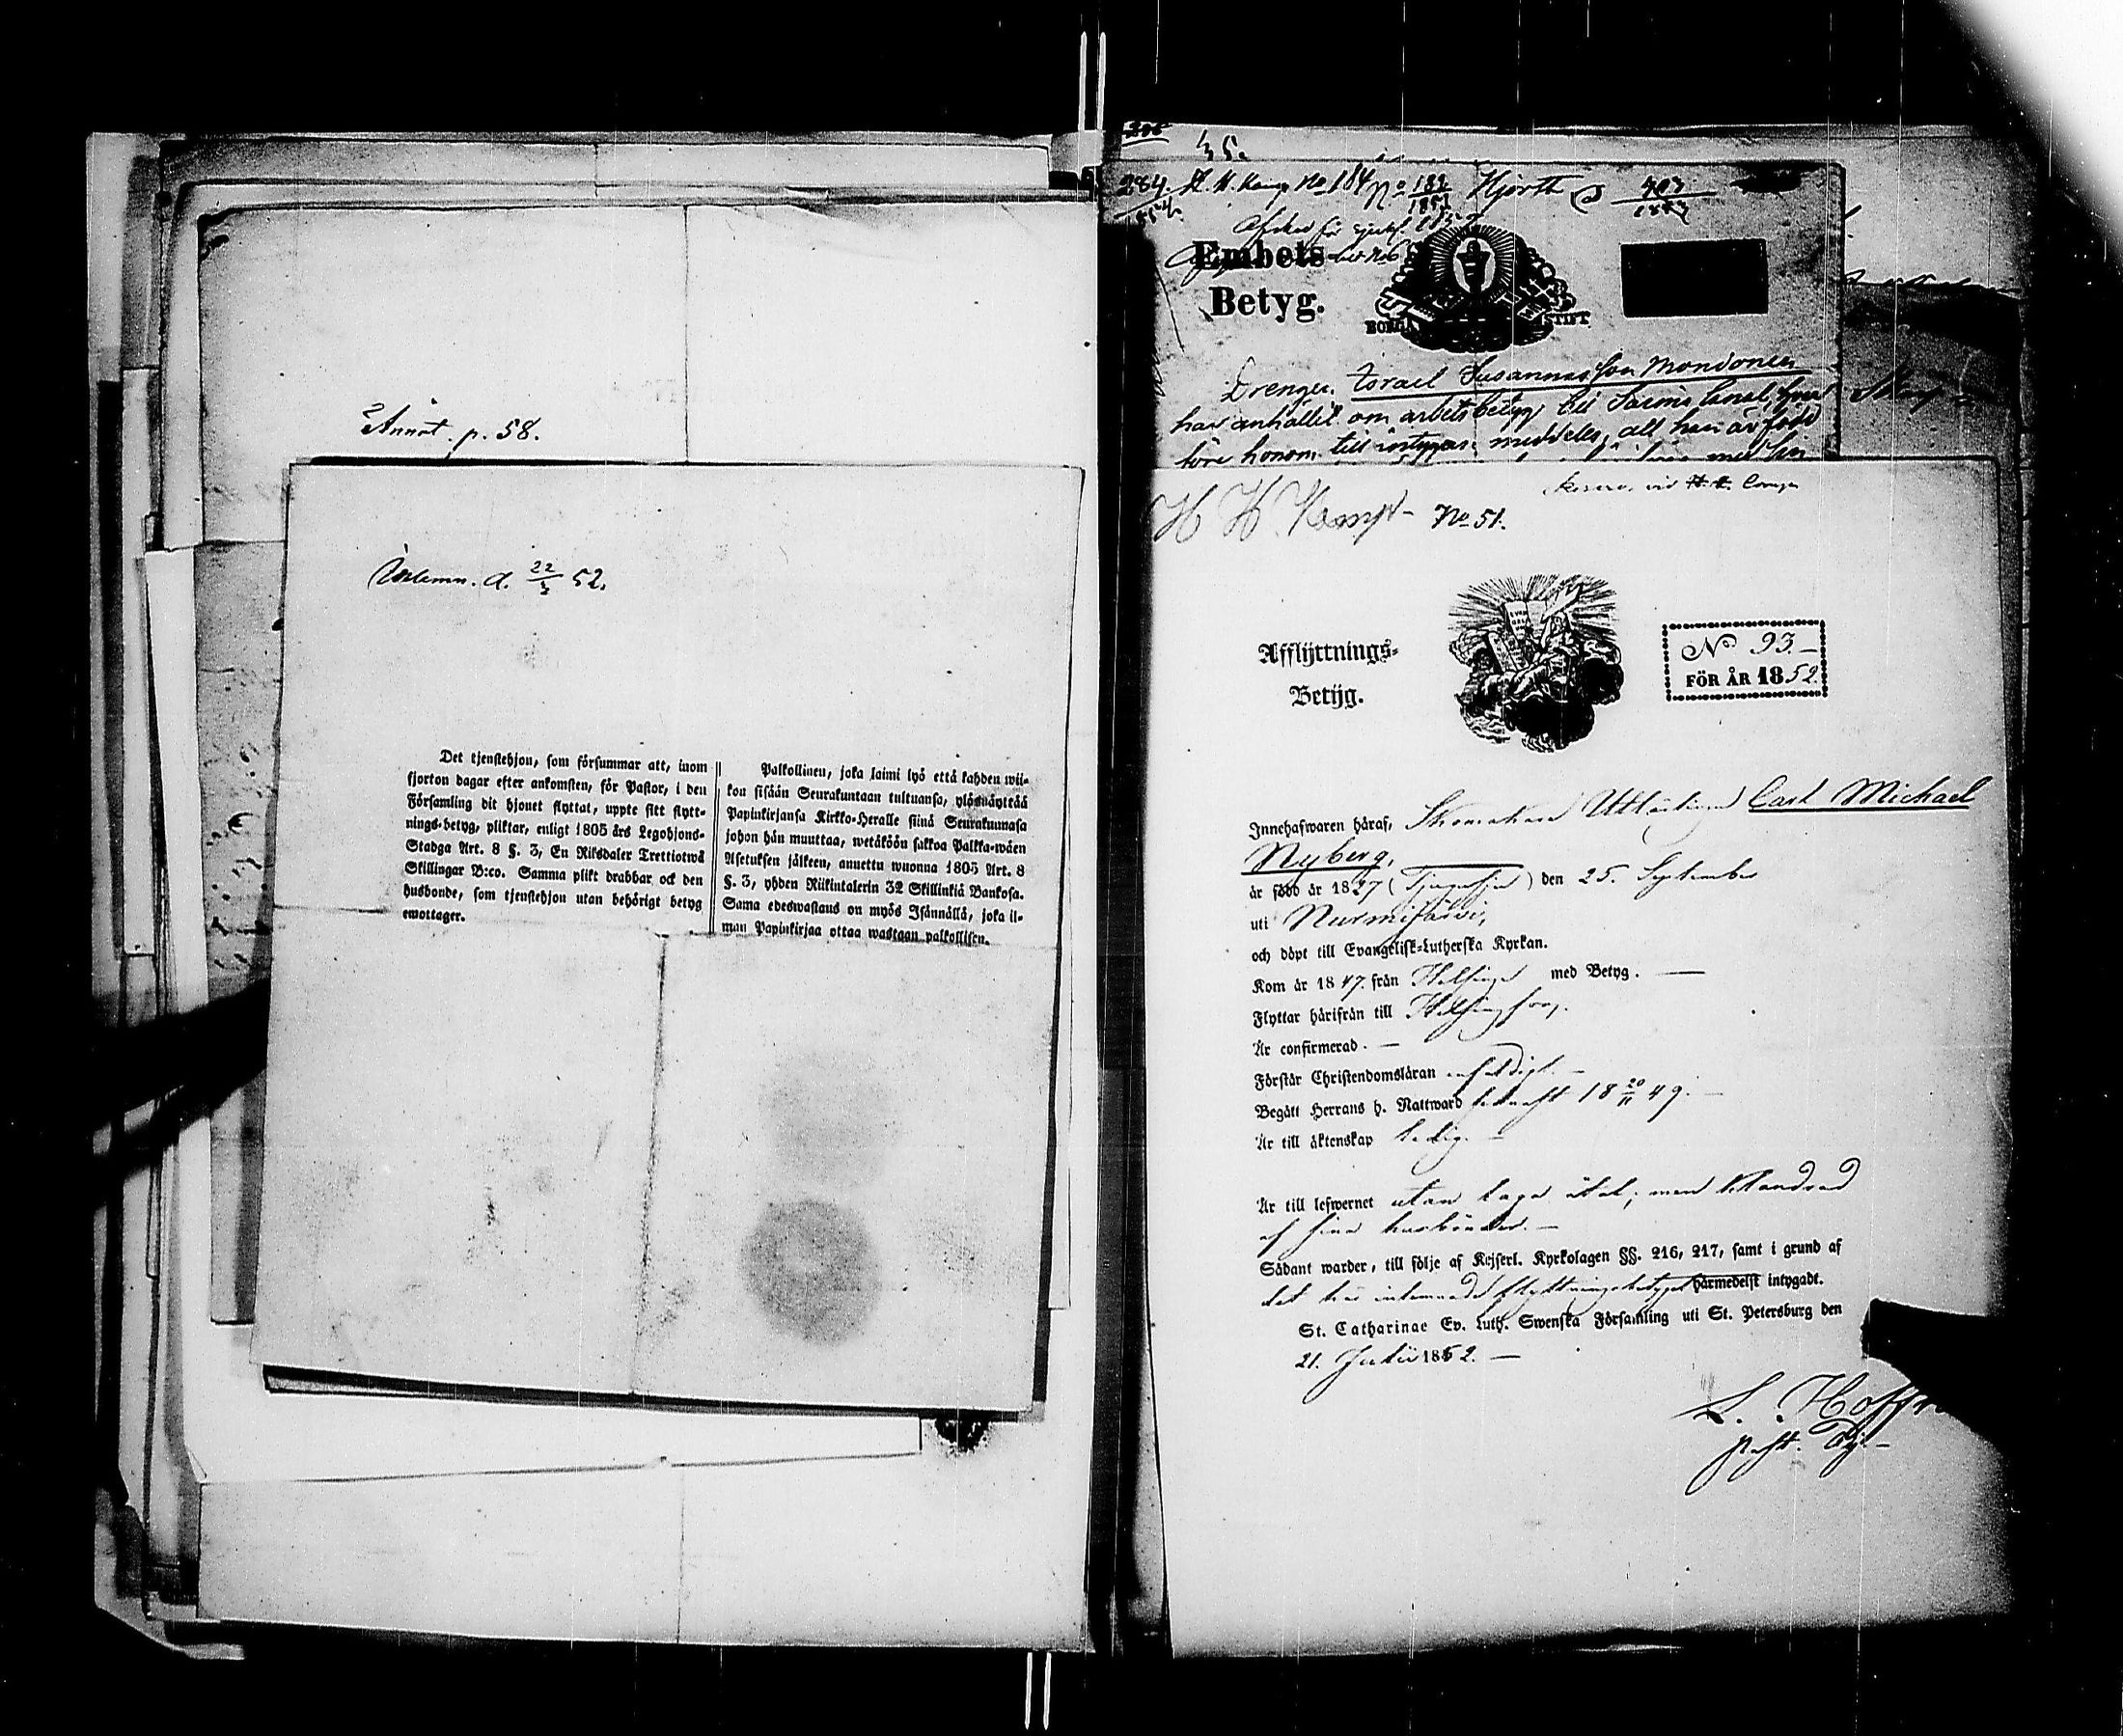 Annot. p. 58.
Inlemn. d. 22/3 52.
Det tjenstehjon, som försummar att, inom
fjorton dagar efter ankomsten, för Pastor, i den
Församling dit hjonet flyttat, uppte sitt flytt-
nings-betyg, pliktar, enligt 1805 års Legohjons-
Stadga Art. 8 §. 3, En Riksdaler Trettiotwå
Skillingar B:co. Samma plikt drabbar ock den
husbonde, som tjenstehjon utan behörigt betyg
emottager.
Palkollinen, joka laimi lyö että kahden wii-
kon sisään Seurakuntaan tultuansa, ylösnäyttää
Papinkirjansa Kirkko-Heralle siinä Seurakunnasa
johon hän muuttaa, wetäköön sakkoa Palkka-wäen
Asetuksen jälkeen, annettu wuonna 1805 Art. 8
§. 3, yhden Riikintalerin 32 Skillinkiä Bankosa.
Sama edeswastaus on myös Isännällä, joka il-
man Papinkirjaa ottaa wastaan palkollisen.
35.
284. No 184 No 182 Hjorth 403
1852
Embets
Betyg.
BORGÅ STIFT
Drengen Israel Susannasson Mondonen
har anhållit om arbetsbetyg till Saima Canal, hvar
före honom till intygan meddeles, att han är född
H H Kamp No 51.
Afflyttnings-
Betyg.
No 93.
FÖR ÅR 1852.
Innehafwaren häraf, Skomakare Utlärlingen Carl Michael
Nyberg,
är född år 1827 (Tjugusju) den 25. September
uti Nurmijärvi,
och döpt till Evangelisk-Lutherska Kyrkan.
Kom år 1847. från Helsinge med Betyg. —
Flyttar härifrån till Helsingfors.
Är confirmerad. —
Förstår Christendomsläran enfaldigt. —
Begått Herrans h. Nattward senast 18 20/11 49. —
Är till äktenskap ledig. —
Är till lefwernet utan laga åtal; men klandrad
af sina husbönder. —
Sådant warder, till följe af Kejserl. Kyrkolagen §§. 216, 217, samt i grund af
det här inlemnade flyttningsbetyget härmedelst intygadt.
St. Catharinae Ev. Luth. Swenska Församling uti St. Petersburg den
21. Julii 1852. —